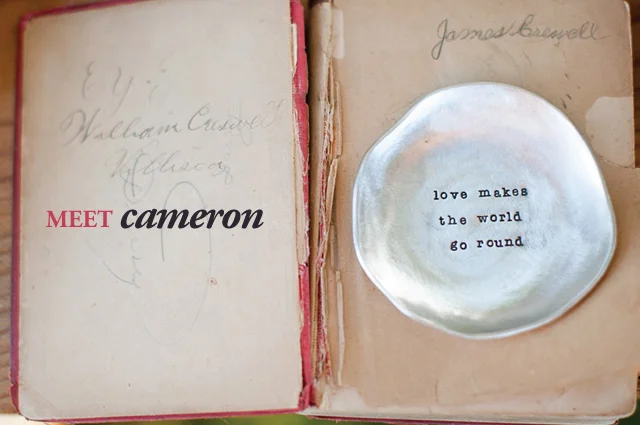 William Creswell
MEET cameron
James Creswell
love makes
the world
go round